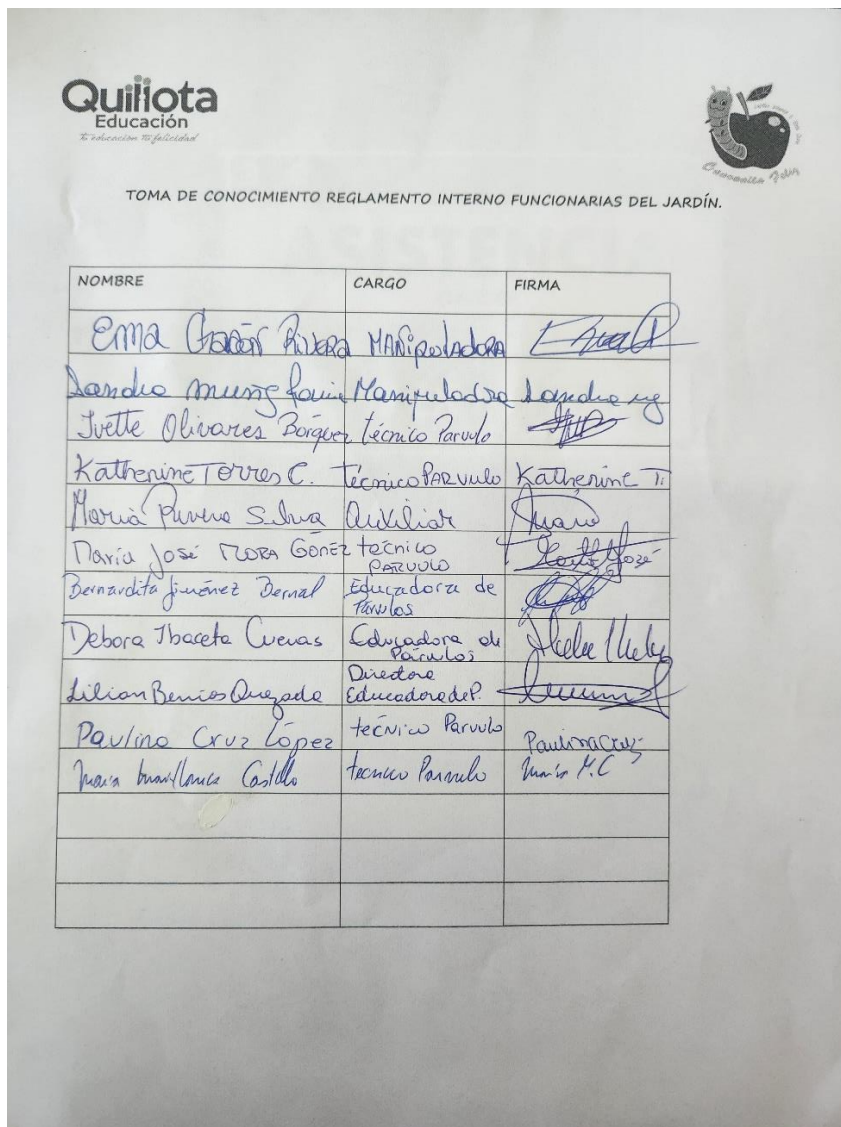 Quillota
Educación
tu educación tu felicidad
TOMA DE CONOCIMIENTO REGLAMENTO INTERNO FUNCIONARIAS DEL JARDÍN.
NOMBRE CARGO FIRMA
Ema Rivera MANipulADORA
Sandra Manipuladora Sandra
Ivette Olivares Bórquez técnico Parvulo
Katherine Torres C. técnico PARVULO Katherine T.
María Rivera Silva Auxiliar
María José MORA GÓMEZ técnico
PARVULO José
Bernardita Jiménez Bernal Educadora de
Párvulos
Debora Ibaceta Cuevas Educadora de
Párvulos
Directora
Lilian Berrios Quezada Educadora de P.
Paulina Cruz López técnico Parvulo Paulina Cruz
María Castillo tecnico Parvulo María M.C